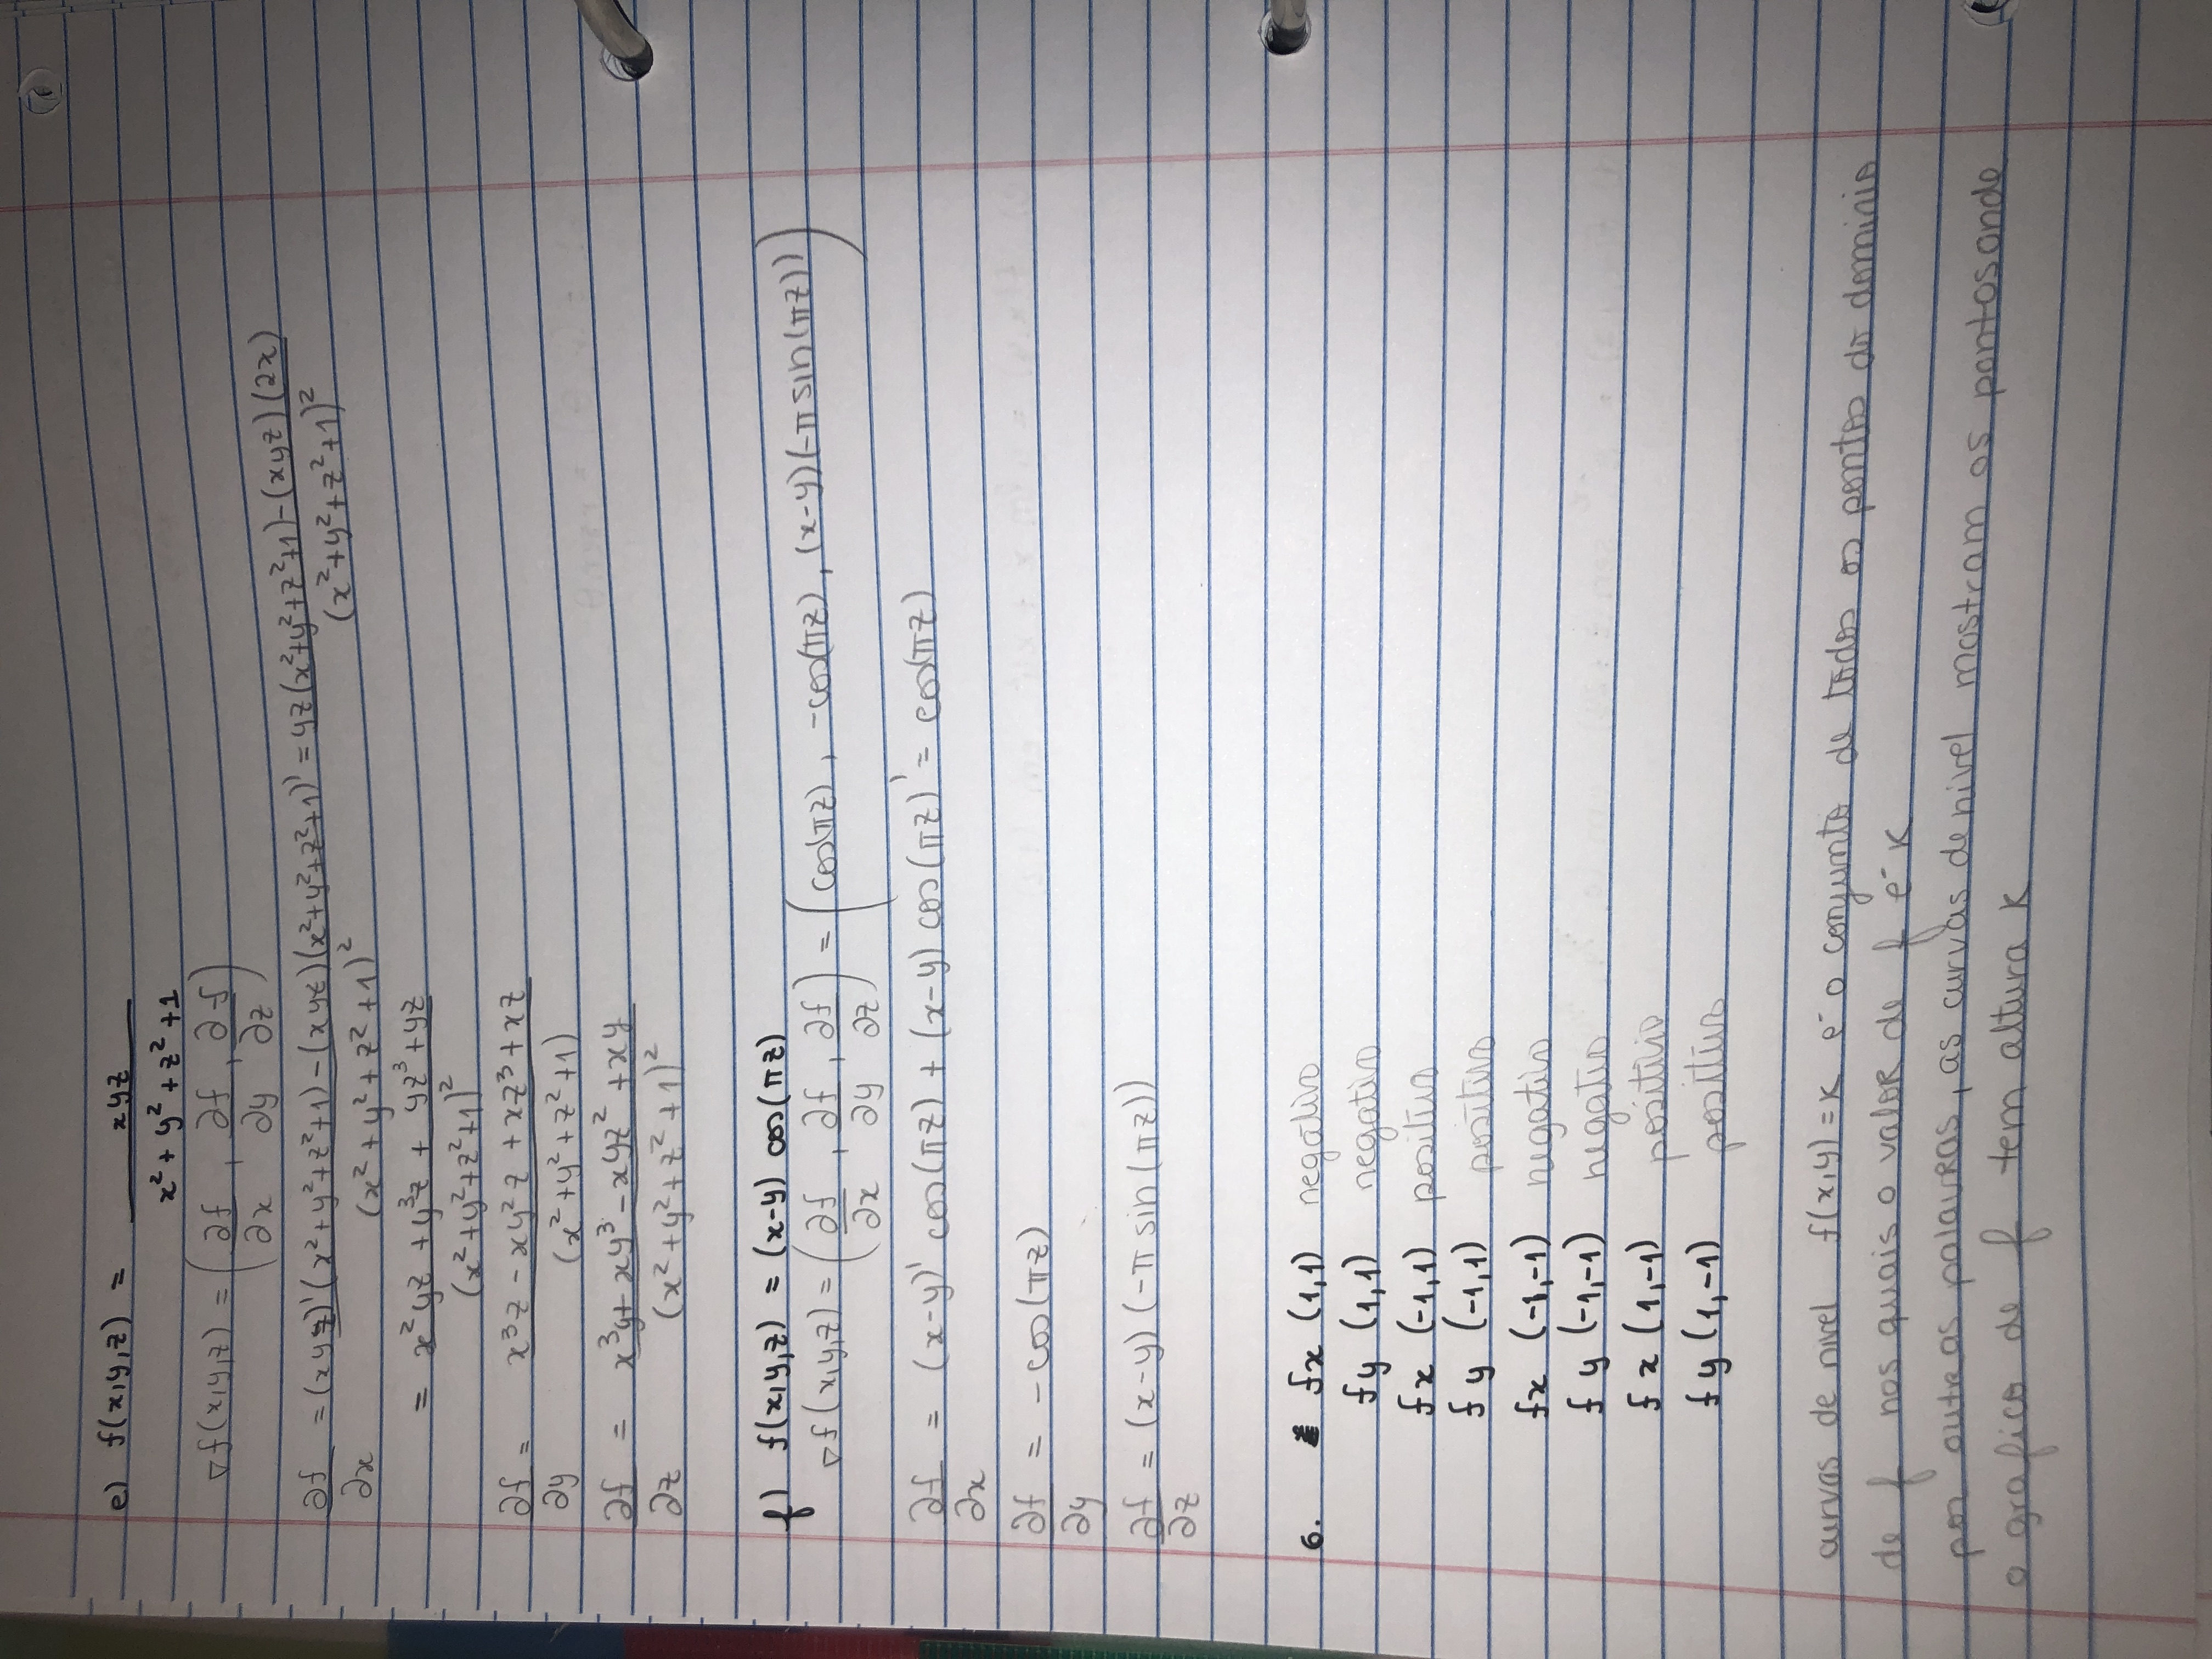 e) f(x,y,z) = xyz / x² + y² + z² + 1
∇f(x,y,z) = (∂f/∂x , ∂f/∂y , ∂f/∂z)
∂f/∂x = (xyz)'(x²+y²+z²+1) - (xyz)(x²+y²+z²+1)' / (x²+y²+z²+1)² = yz(x²+y²+z²+1) - (xyz)(2x) / (x²+y²+z²+1)²
= x²yz + y³z + yz³ + yz / (x²+y²+z²+1)²
∂f/∂y = x³z - xy²z + xz³ + xz / (x²+y²+z²+1)
∂f/∂z = x³y + xy³ - xyz² + xy / (x²+y²+z²+1)²
f) f(x,y,z) = (x-y) cos(πz)
∇f(x,y,z) = (∂f/∂x , ∂f/∂y , ∂f/∂z) = (cos(πz), -cos(πz), (x-y)(-π sin(πz)))
∂f/∂x = (x-y)' cos(πz) + (x-y) cos(πz)' = cos(πz)
∂f/∂y = -cos(πz)
∂f/∂z = (x-y)(-π sin(πz))
6. fx (1,1) negativo
fy (1,1) negativo
fx (-1,1) positivo
fy (-1,1) positivo
fx (-1,-1) negativo
fy (-1,-1) negativo
fx (1,-1) positivo
fy (1,-1) positivo
curvas de nivel f(x,y)=K é o conjunto de todos os pontos do dominio
de f nos quais o valor de f é K
por outras palavras, as curvas de nivel mostram os pontos onde
o grafico de f tem altura K